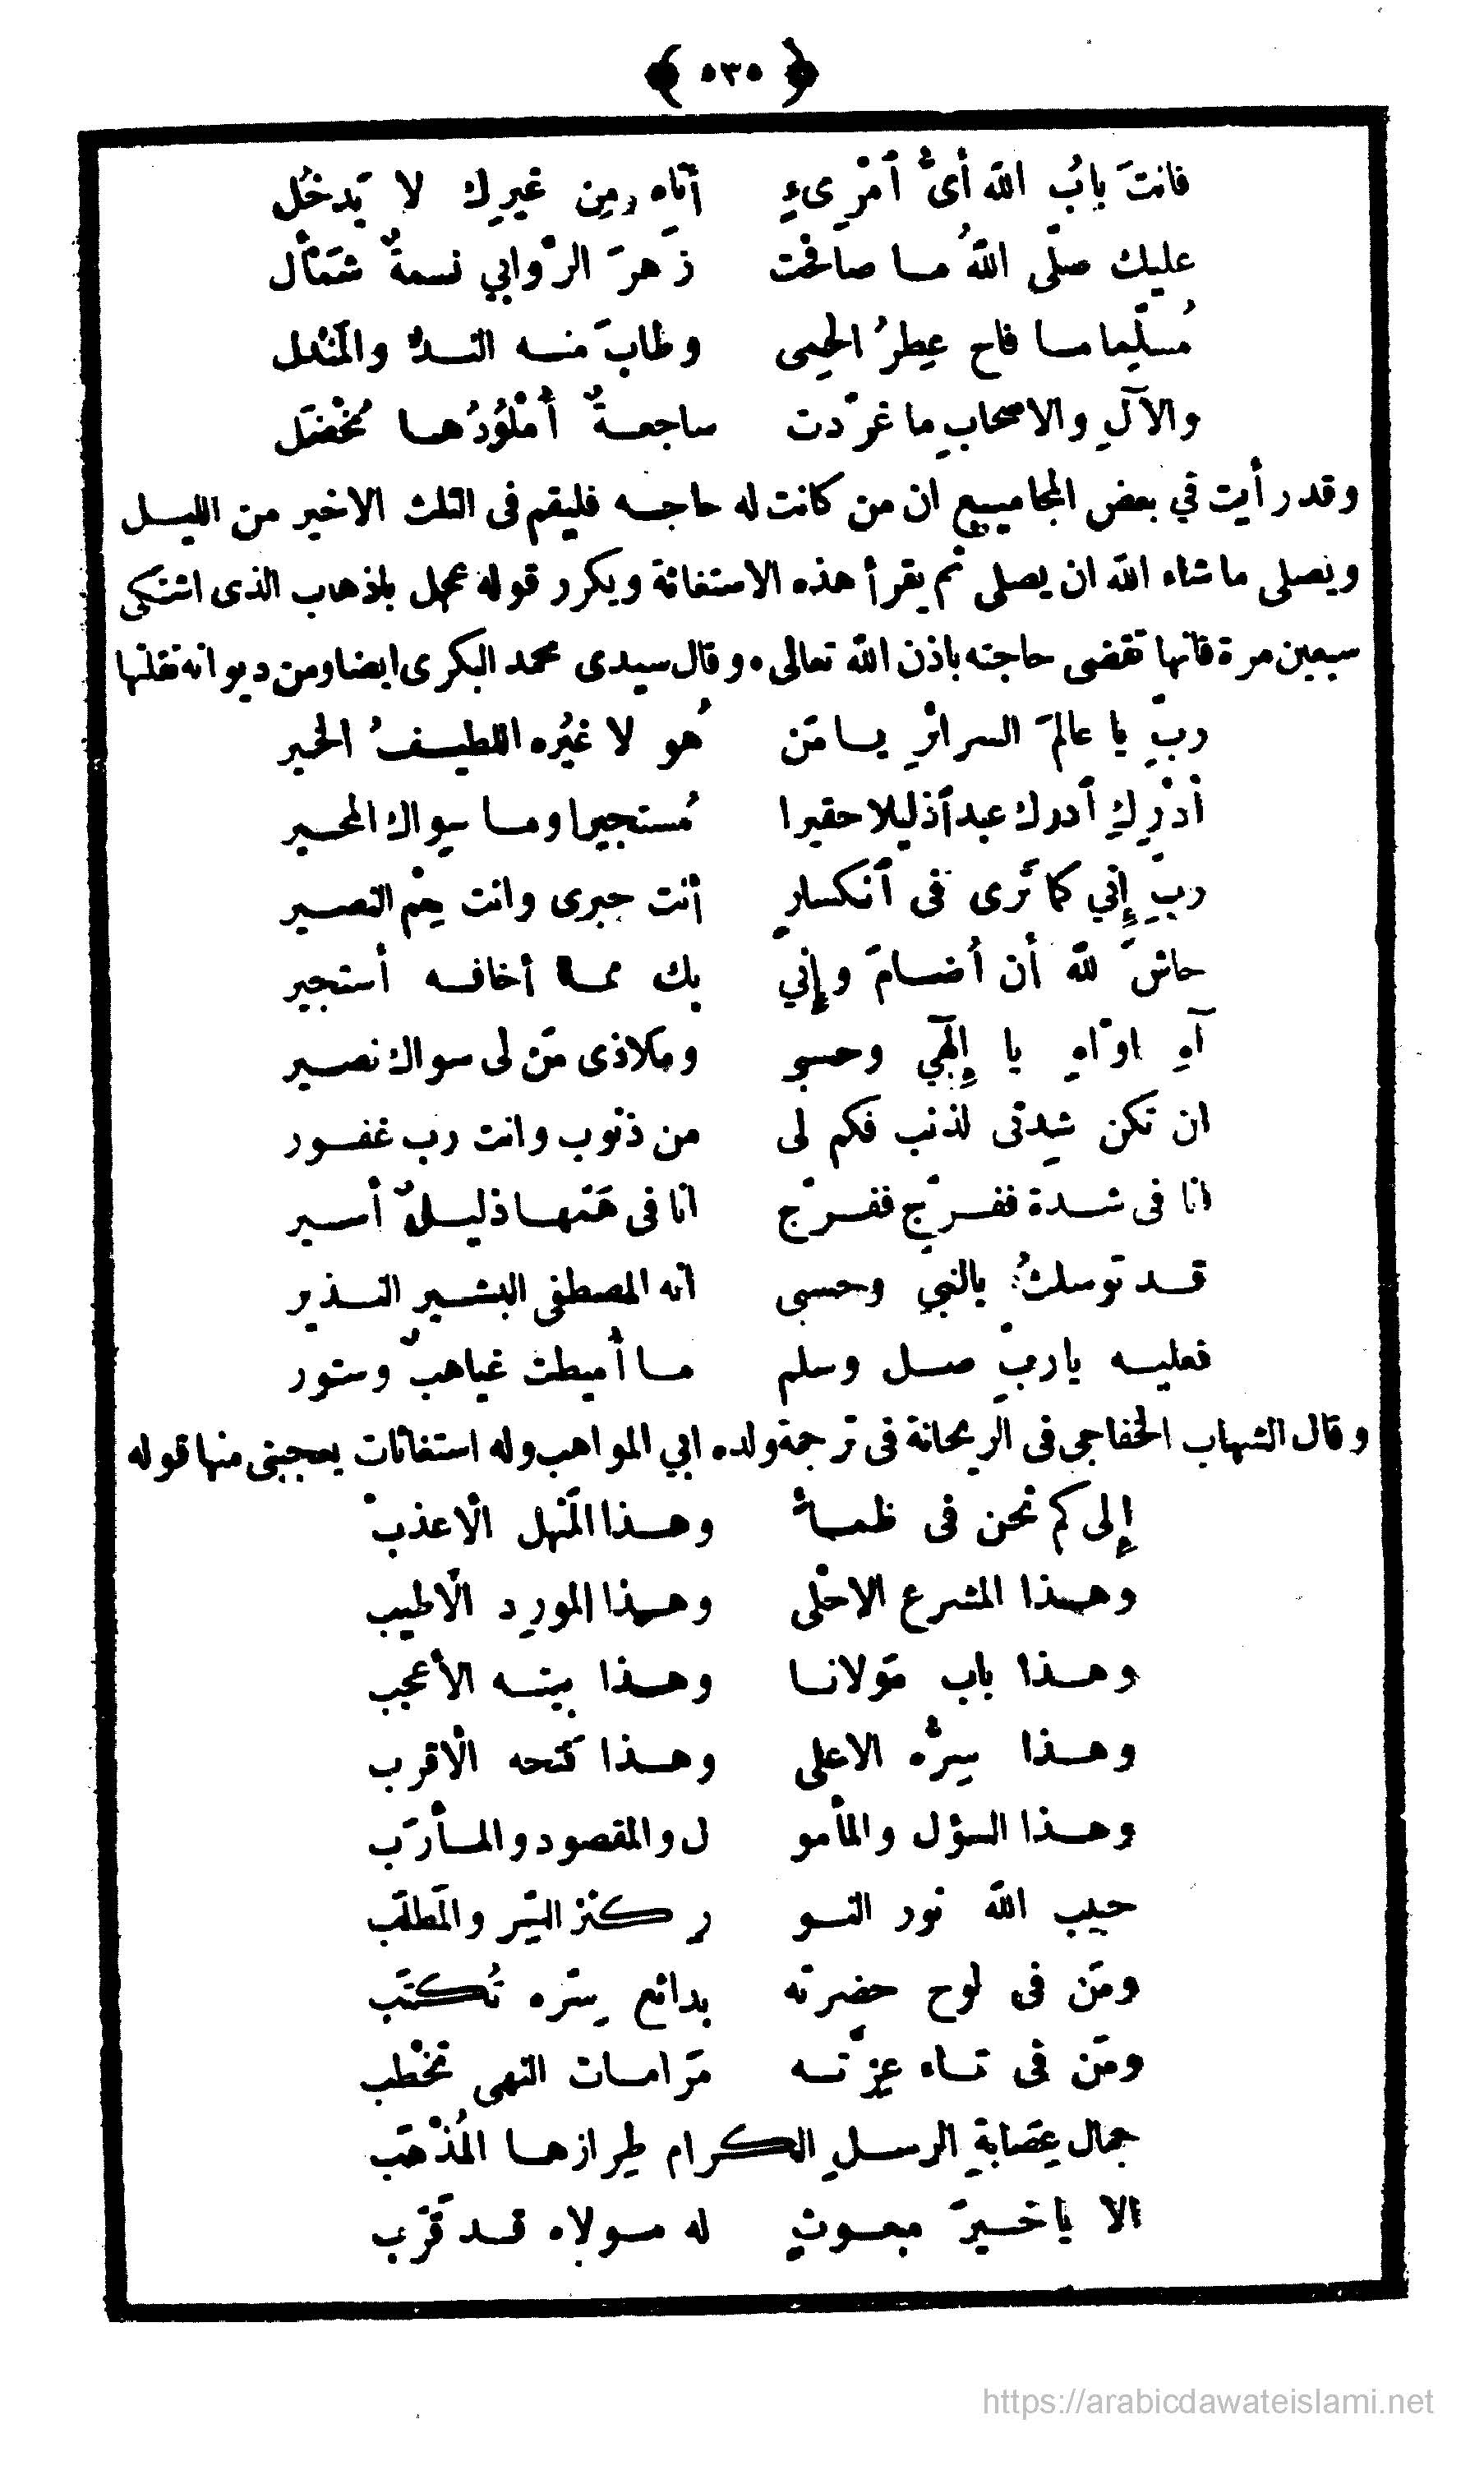 ﴿ ٥٣٥ ﴾
فانتَ بابُ اللّه أىُّ ٱمْرِىءٍ أتاه مِن غيرِك لا يَدخُل
عليك صلّى اللّهُ مـا صافَحت زَهرَ الرَّوابي نسمةٌ شَمْأَل
مُسلّما مـا فاح عِطرُ الحِمى وطابَ منـه النـدُّ والمَنْدل
والآلِ والاصحابِ ما غرّدت ساجعـةٌ أُمْلُودُهـا مُخْضَل
وقد رأيت في بعض المجاميع ان من كانت له حاجـه فليقم فى الثلث الاخير من الليـل
ويصلى ماشاء اللّه ان يصلى ثم يقرأ هذه الاستغاثة ويكرر قوله عجل باذهاب الذى اشتكى
سبعين مرة فانها تقضى حاجته باذن اللّه تعالى ٠ وقال سيدى محمد البكرى ايضا ومن ديوانه نقلتها
ربِّ يا عالمَ السرائرِ يـا مَن هُو لا غيرُه اللطيـفُ الخبير
أدْرِكِ ٱدرك عبدا ذليلا حقيرا مُستجيرا ومـا سِواك المجـير
ربِّ إِني كما تَرى فى ٱنكسارٍ أنت جبرى وانت نِعْم النصـير
حاشَ للّه أن أُضـامَ وإِنّي بك ممـا أخافـه أستجير
آهِ اوّاهِ يا إِلٓهي وحسبي وملاذى مَن لى سواك نصـير
ان تكن شِدتى لذنب فكم لى من ذنوب وانت رب غفـور
انا فى شـدة ففـرّج ففـرّج انا فى هَمّهـا ذليـلٌ أسـير
قـد توسلتُ بالنبيِّ وحسبى انه المصطفى البشـير النـذير
فعليـه ياربِّ صـل وسلم مـا أُميطت غياهبٌ وستور
وقال الشهاب الخفاجى فى الريحانة فى ترجمة ولده ابي المواهب وله استغاثات يعجبنى منها قوله
إِلى كم نحن فى ظمـأٍ وهـذا المَنهل الأعذبْ
وهـذا المشرع الاحْلى وهـذا المورد الأطيب
وهـذا باب مَولانـا وهـذا بيتـه الأعجب
وهـذا سِرُّه الاعلى وهـذا فتحه الأقرب
وهـذا السؤل والمأمو ل والمقصود والمـأرَب
حبيب اللّه نور النـو رِ كنز السِّر والمَطلَب
ومَن فى لوح حضرته بدائع سِرّه تُكتَب
ومَن في تـاه عِزّتـه مَرامـات النهى تخْطب
جمال عِصابةِ الرسـلِ الكرام طِرازهـا المُذْهَب
الا يا خـيرَ مبعـوثٍ له مـولاه قـد قَرّب
https://arabicdawateislami.net